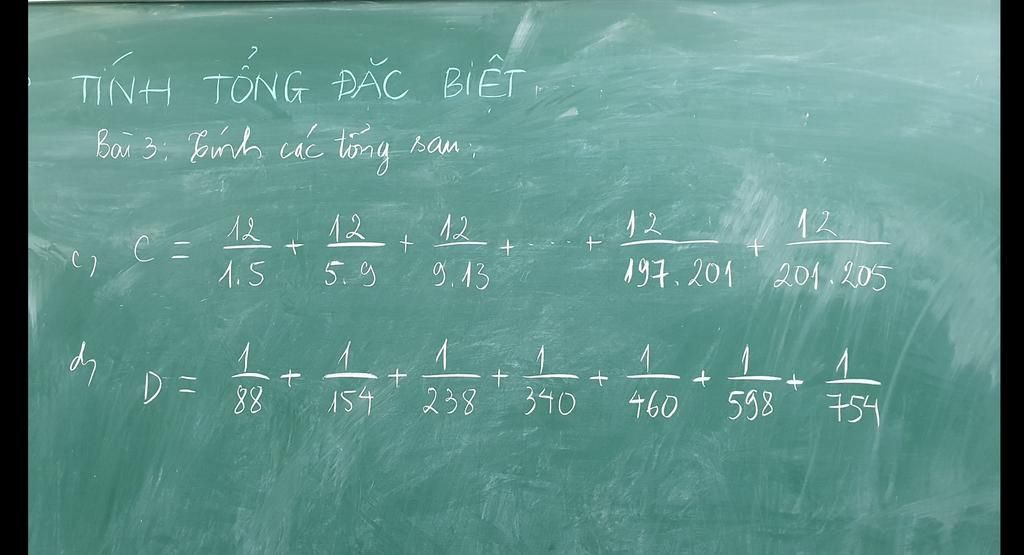 TÍNH TỔNG ĐẶC BIỆT
Bài 3: Tính các tổng sau:
c, C = 12/1.5 + 12/5.9 + 12/9.13 + ..... + 12/197.201 + 12/201.205
d, D = 1/88 + 1/154 + 1/238 + 1/340 + 1/460 + 1/598 + 1/754